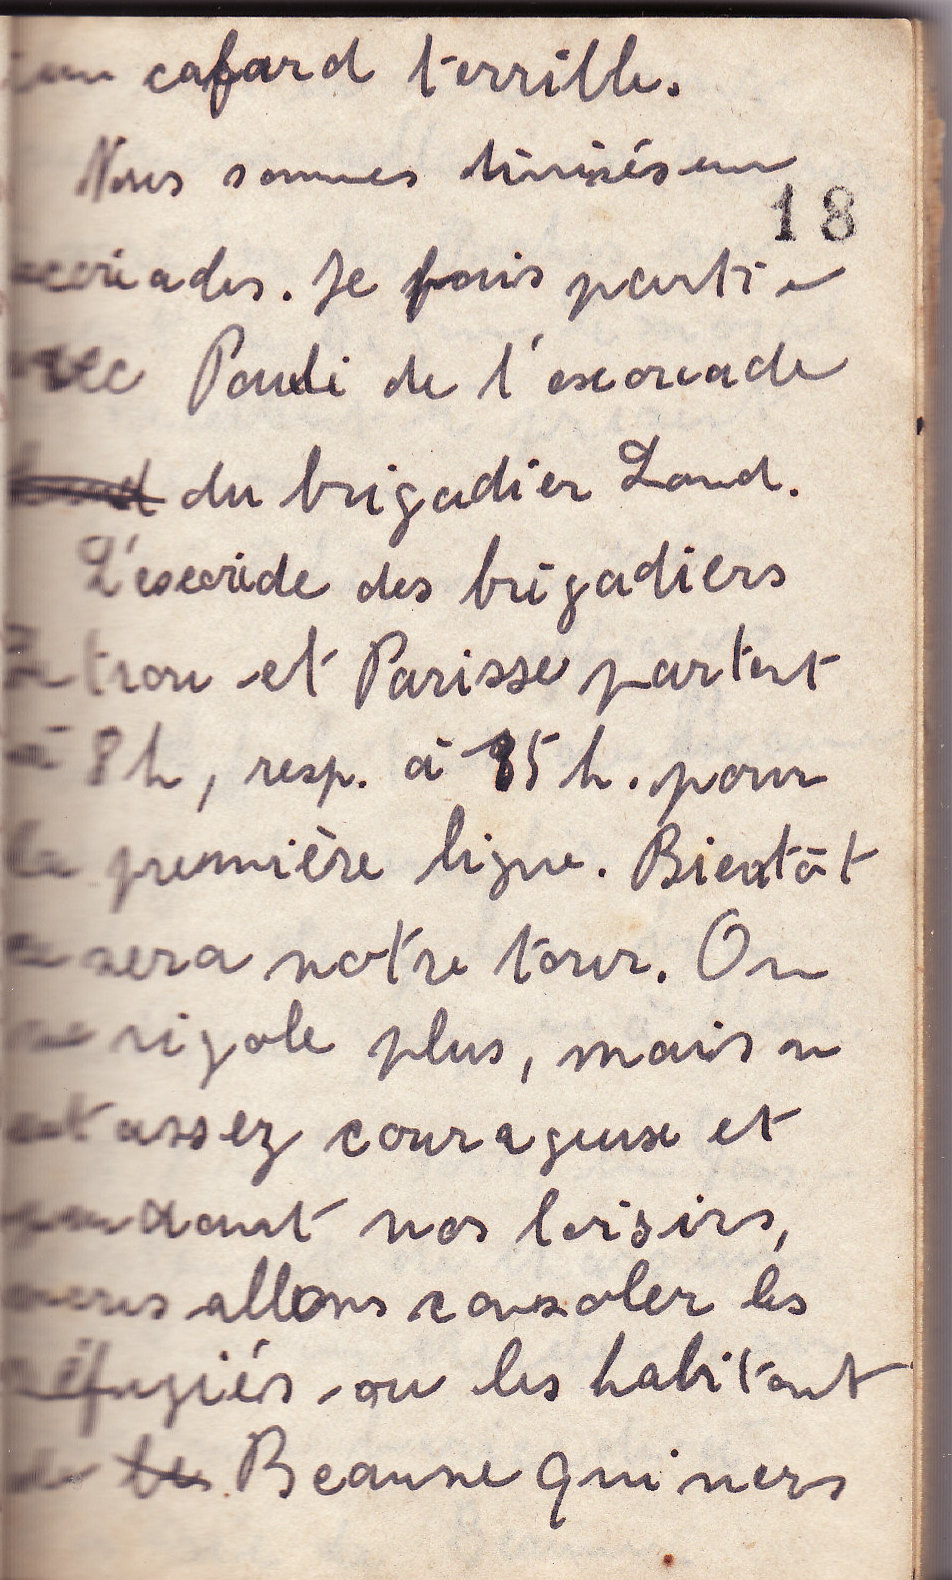 un cafard terrible.
Nous sommes divisés en
18
escouades. Je fais partie
avec Pauli de l'escouade
du brigadier Laud.
L'escouide des brigadiers
Petrou et Parisse partent
à 8h, resp. à 15 h. pour
la première ligne. Bientôt
ce sera notre tour. On
ne rigole plus, mais on
est assez courageux et
pendant nos loisirs,
nous allons consoler les
réfugiés ou les habitant
de Beaune qui nous